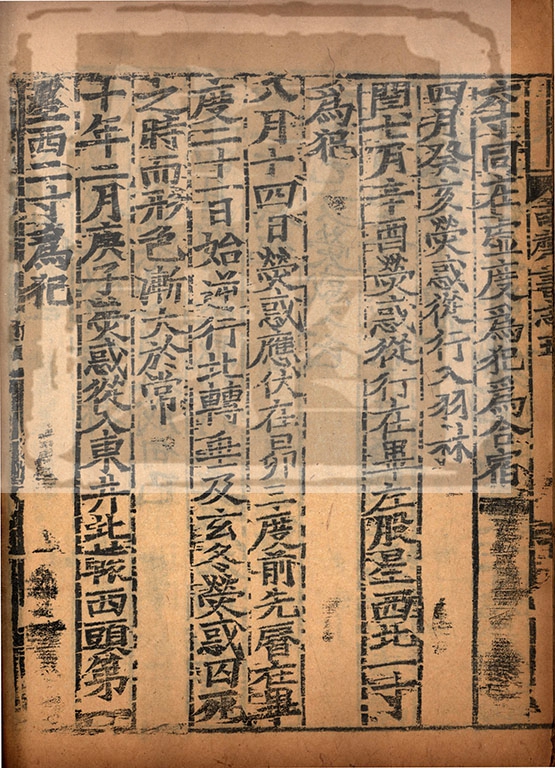 六寸同在虛度爲犯爲合宿
四月癸亥熒惑從行入羽林
閏七月辛酉熒惑從行在畢左股星西北一寸
爲犯
八月十四日熒惑應伏在昴三度前先曆在畢
度二十一日始逆行北轉垂及玄冬熒惑囚死
之時而形色漸大於常
十年二月庚子熒惑從入東井北轅西頭第一
星西二寸爲犯